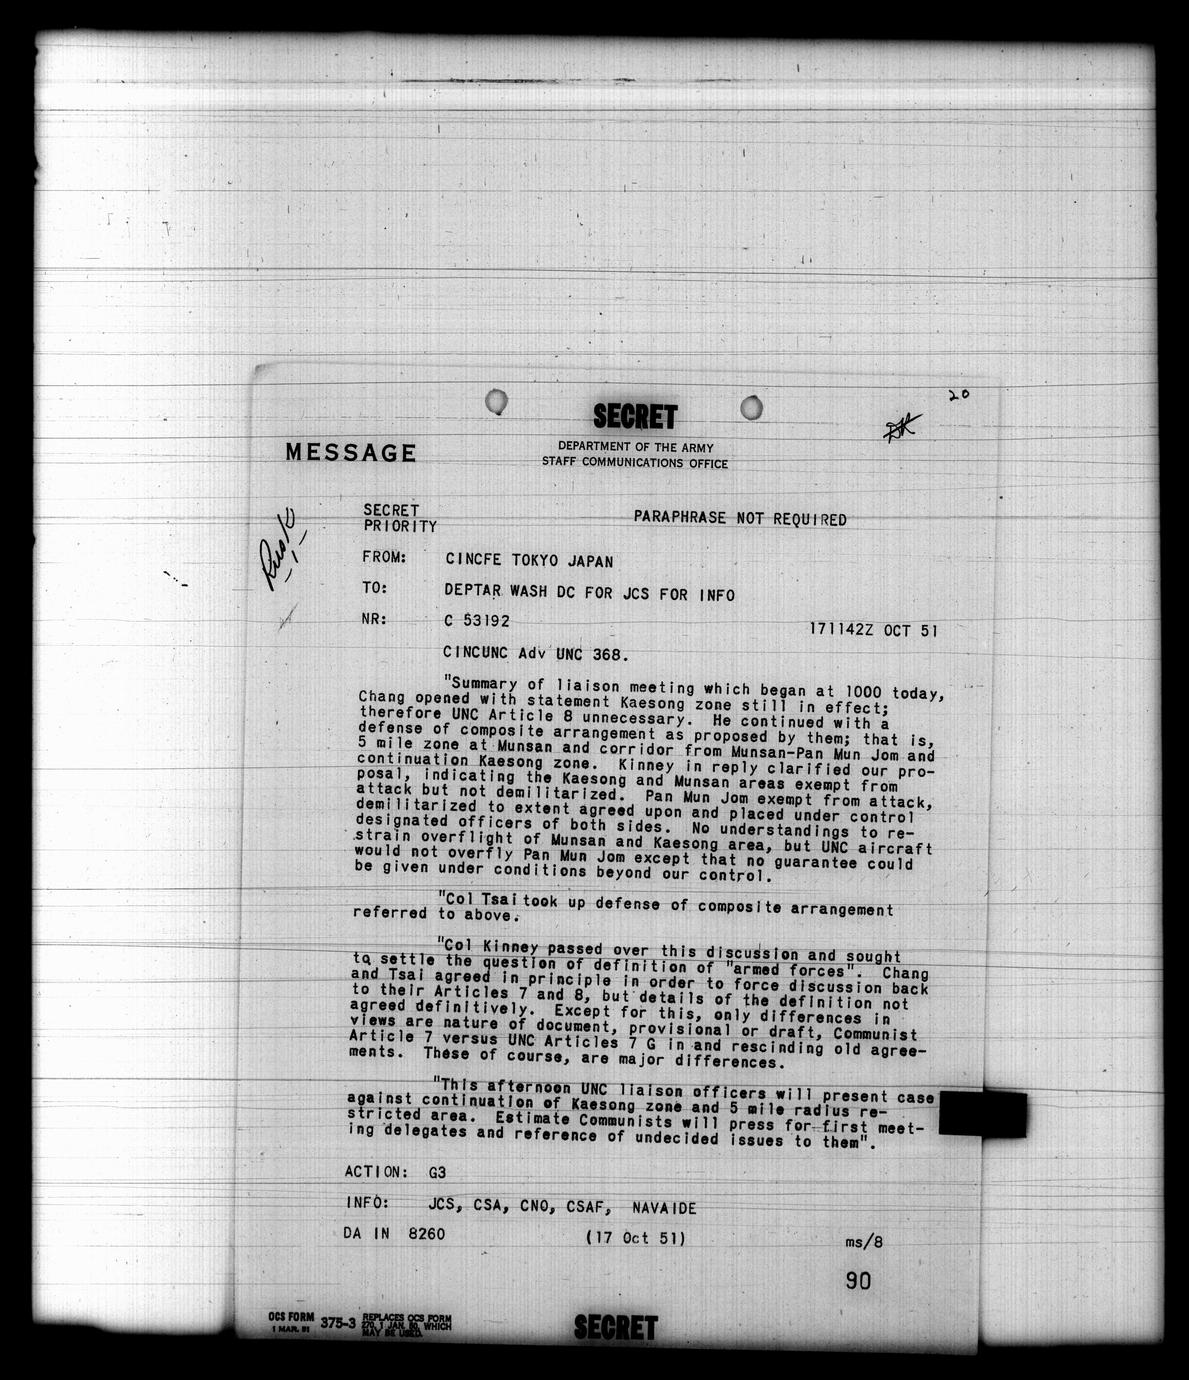 20
SECRET
DEPARTMENT OF THE ARMY
STAFF COMMUNICATIONS OFFICE
MESSAGE
SECRET
PRIORITY
PARAPHRASE NOT REQUIRED
Rusk
FROM: CINCFE TOKYO JAPAN
TO: DEPTAR WASH DC FOR JCS FOR INFO
NR: C 53192
171142Z OCT 51
CINCUNC Adv UNC 368.
"Summary of liaison meeting which began at 1000 today,
Chang opened with statement Kaesong zone still in effect;
therefore UNC Article 8 unnecessary. He continued with a
defense of composite arrangement as proposed by them; that is,
5 mile zone at Munsan and corridor from Munsan-Pan Mun Jom and
continuation Kaesong zone. Kinney in reply clarified our pro-
posal, indicating the Kaesong and Munsan areas exempt from
attack but not demilitarized. Pan Mun Jom exempt from attack,
demilitarized to extent agreed upon and placed under control
designated officers of both sides. No understandings to re-
strain overflight of Munsan and Kaesong area, but UNC aircraft
would not overfly Pan Mun Jom except that no guarantee could
be given under conditions beyond our control.
"Col Tsai took up defense of composite arrangement
referred to above.
"Col Kinney passed over this discussion and sought
to settle the question of definition of "armed forces". Chang
and Tsai agreed in principle in order to force discussion back
to their Articles 7 and 8, but details of the definition not
agreed definitively. Except for this, only differences in
views are nature of document, provisional or draft, Communist
Article 7 versus UNC Articles 7 G in and rescinding old agree-
ments. These of course, are major differences.
"This afternoon UNC liaison officers will present case
against continuation of Kaesong zone and 5 mile radius re-
stricted area. Estimate Communists will press for first meet-
ing delegates and reference of undecided issues to them".
ACTION: G3
INFO: JCS, CSA, CNO, CSAF, NAVAIDE
DA IN 8260 (17 Oct 51) ms/8
90
OCS FORM 375-3 REPLACES OCS FORM
1 MAR. 51 270, 1 JAN. 50, WHICH
MAY BE USED.
SECRET